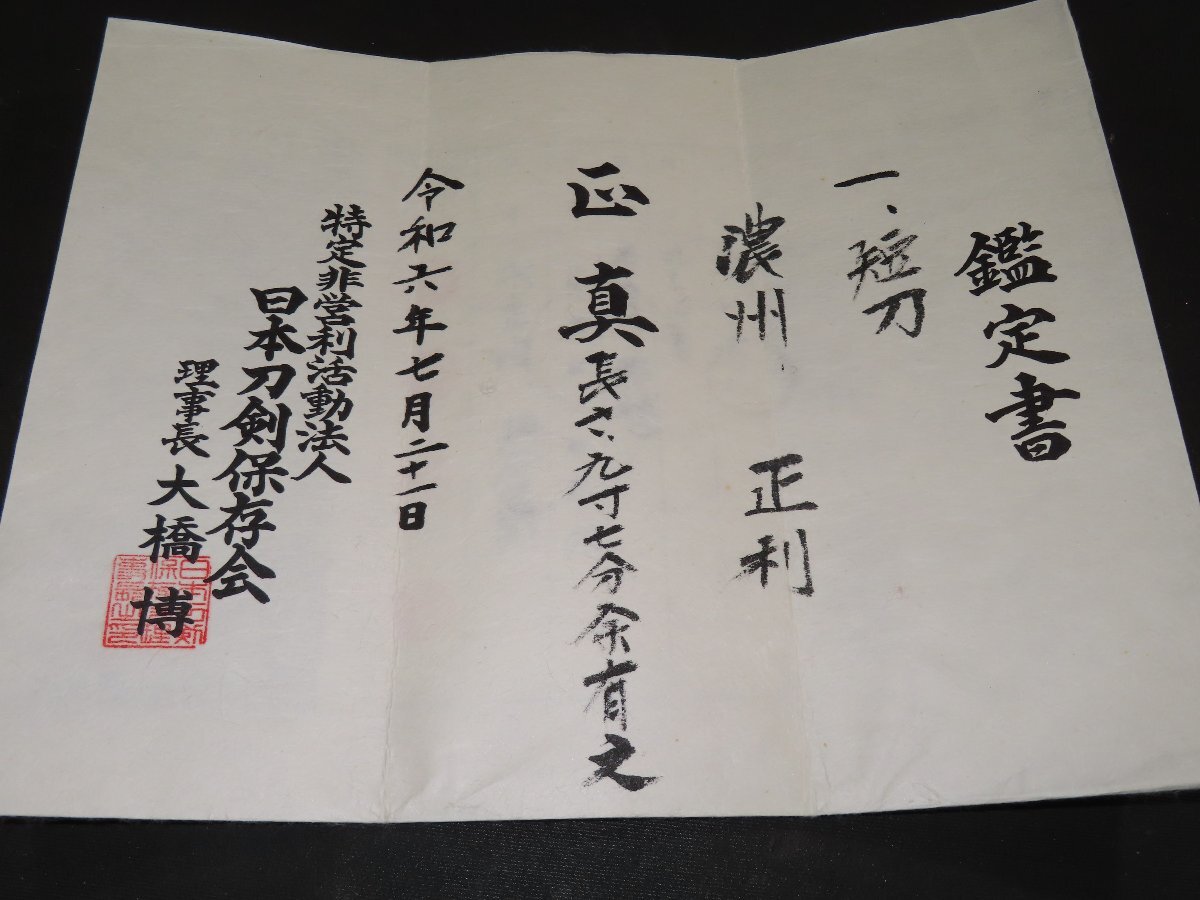 鑑定書
一、短刀
濃州 正利
正真 長さ、九寸七分余有之
令和六年七月二十一日
特定非営利活動法人
日本刀剣保存会
理事長 大橋博